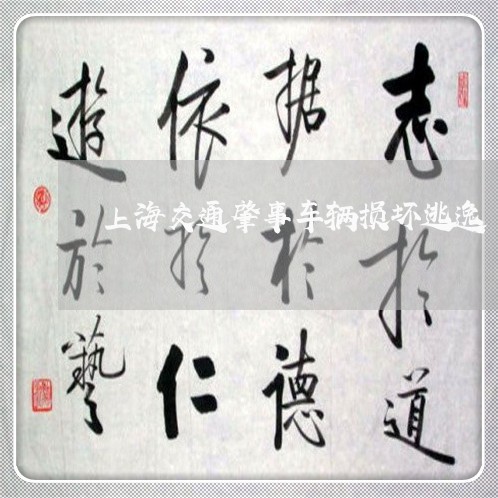 志於道
据於德
依於仁
遊於藝
上海交通肇事车辆损坏逃逸